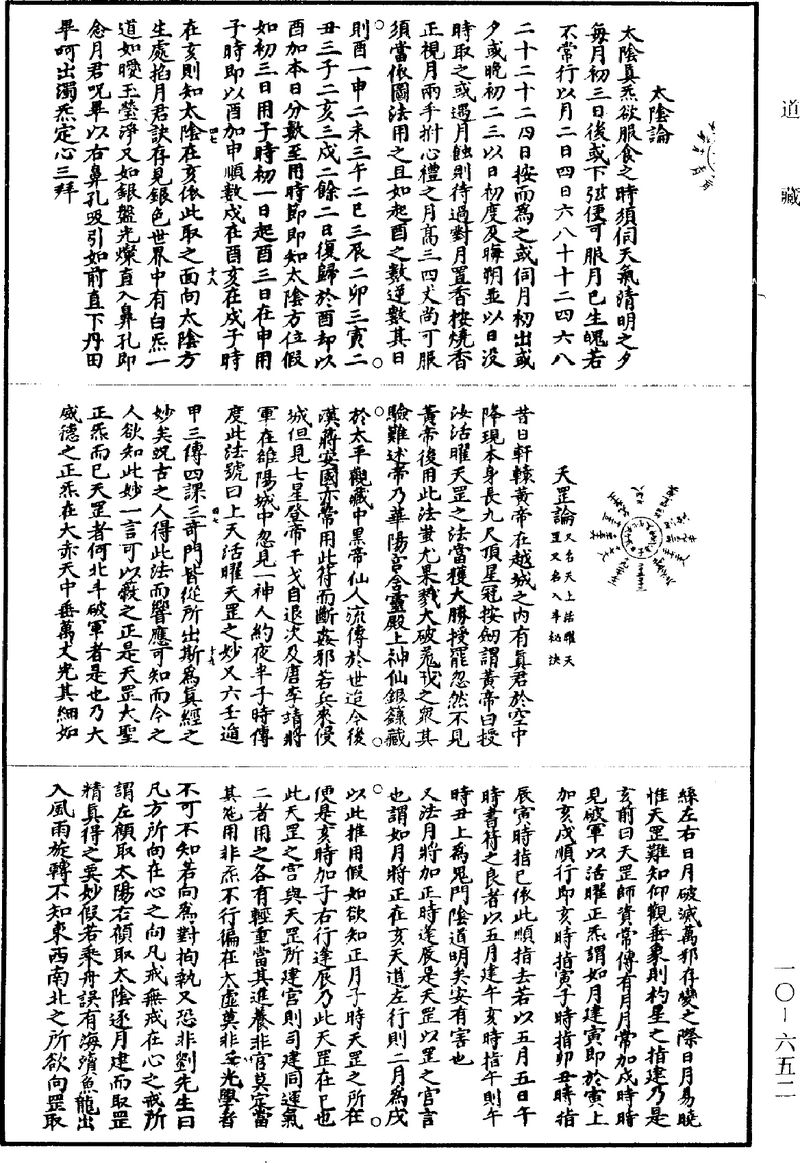 道藏
太陰論
太陰真炁欲服食之時須伺天氣清明之夕
每月初三日後或下弦便可服月已生魄若
不常行以月二日四日六八十十二四六八
二十二十二四日按而為之或伺月初出或
夕或晚初二三以日初度及晦朔並以日沒
時取之或遇月蝕則待過對月置香按燒香
正視月兩手拊心禮之月高三四丈尚可服
須當依圖法用之且如起酉之數逆數其日
則酉一申二未三午二巳三辰二卯三寅二
丑三子二亥三戍二餘二日復歸於酉却以
酉加本日分數至用時節即知太陰方位假
如初三日用子時初一日起酉三日在申用
子時即以酉加申順數戍在酉亥在戍子時
在亥則知太陰在亥依此取之面向太陰方
生處掐月君訣存見銀色世界中有白炁一
道如曖玉瑩淨又如銀盤光燦直入鼻孔即
念月君呪畢以右鼻孔吸引如前直下丹田
畢呵出濁炁定心三拜
天罡論又名天上活曜天罡又名入斗秘訣
昔日軒轅黃帝在越城之內有真君於空中
降現本身長九尺頂星冠按劒謂黃帝曰授
汝活曜天罡之法當獲大勝授罷忽然不見
黃帝後用此法蚩尤果戮大破鬼戎之眾其
驗難述帝乃華陽宮含靈殿上神仙銀籙藏
於太平觀藏中黑帝仙人流傳於世迨今後
漢蔣安國亦常用此符而斷姦邪若兵來侵
城但見七星登帝干戈自退次及唐李靖將
軍在雒陽城中忽見一神人約夜半子時傳
度此法號曰上天活曜天罡之妙又六壬遁
甲三傳四課三奇門皆從所出斯為真經之
妙矣況古之人得此法而響應可知而今之
人欲知此妙一言可以蔽之正是天罡大聖
正炁而已天罡者何北斗破軍者是也乃大
威德之正炁在大赤天中垂萬丈光其細如
絲左右日月破滅萬邪存變之際日月易曉
惟天罡難知仰觀垂象則杓星之指建乃是
亥前曰天罡師資常傳有月月常加戍時時
見破軍以活曜正炁謂如月建寅即於寅上
加亥戍順行即亥時指寅子時指卯丑時指
辰寅時指巳依此順指去若以五月五日午
時書符之良者以五月建午亥時指午則午
時丑上為鬼門陰道明矣安有害也
又法月將加正時逢辰是天罡以罡之宮言
也謂如月將正在亥天道左行則二月為戍
以此推用假如欲知正月子時天罡之所在
便是亥時加子右行逢辰乃此天罡在巳也
此天罡之宮與天罡所建宮則司建同運氣
二者用之各有輕重當其進養非官莫定當
其施用非炁不行徧在大虛莫非妥光學者
不可不知若向為對拘執又恐非劉先生曰
凡方所向在心之向凡戒無戒在心之戒所
謂左顧取太陽右顧取太陰逐月建而取罡
精真得之要妙假若乘舟誤有海濆魚龍出
入風雨旋轉不知東西南北之所欲向罡取
一〇－六五二